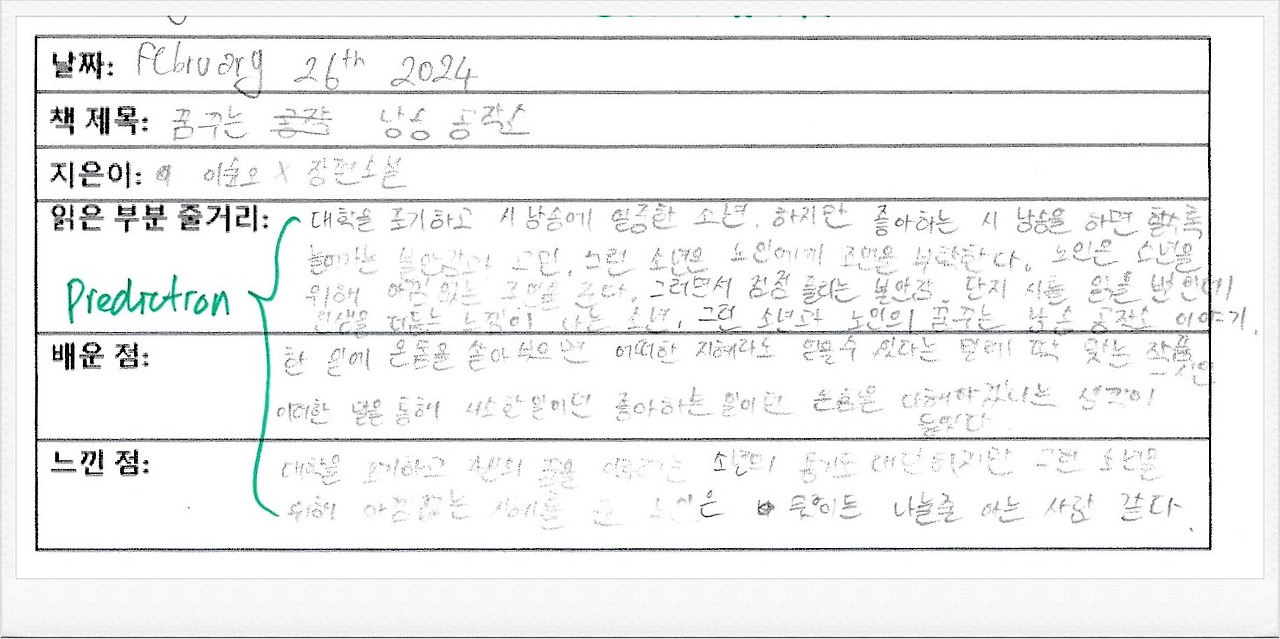 날짜: February 26th 2024
책 제목: 꿈꾸는 공작 낭송 공작소
지은이: 이술오 X 장편소설
읽은 부분 줄거리: 대학을 포기하고 시 낭송에 열중한 소년. 하지만 좋아하는 시 낭송을 하면 할수록
늘어가는 불안감과 고민. 그런 소년은 노인에게 조언을 부탁한다. 노인은 소년을
Prediction
위해 아낌 없는 조언을 준다. 그러면서 점점 줄다는 불안감. 단지 시를 읽을 뿐인데
인생을 떠듬는 느낌이 나는 소년. 그런 소년과 노인의 꿈꾸는 낭송 공작소 이야기.
배운 점: 한 일에 온힘을 쏟아 부으면 어떠한 지혜라도 얻을 수 있다는 말에 딱 맞는 작품인
이러한 말을 통해 사소한 일이던 좋아하는 일이던 온힘을 다해야겠다는 생각이
들었다
느낀 점: 대학을 포기하고 자신의 꿈을 이루려는 소년의 용기도 대단하지만 그런 소년을
위해 아낌없는 지혜를 준 노인은 무엇이든 나눌줄 아는 사람 같다.